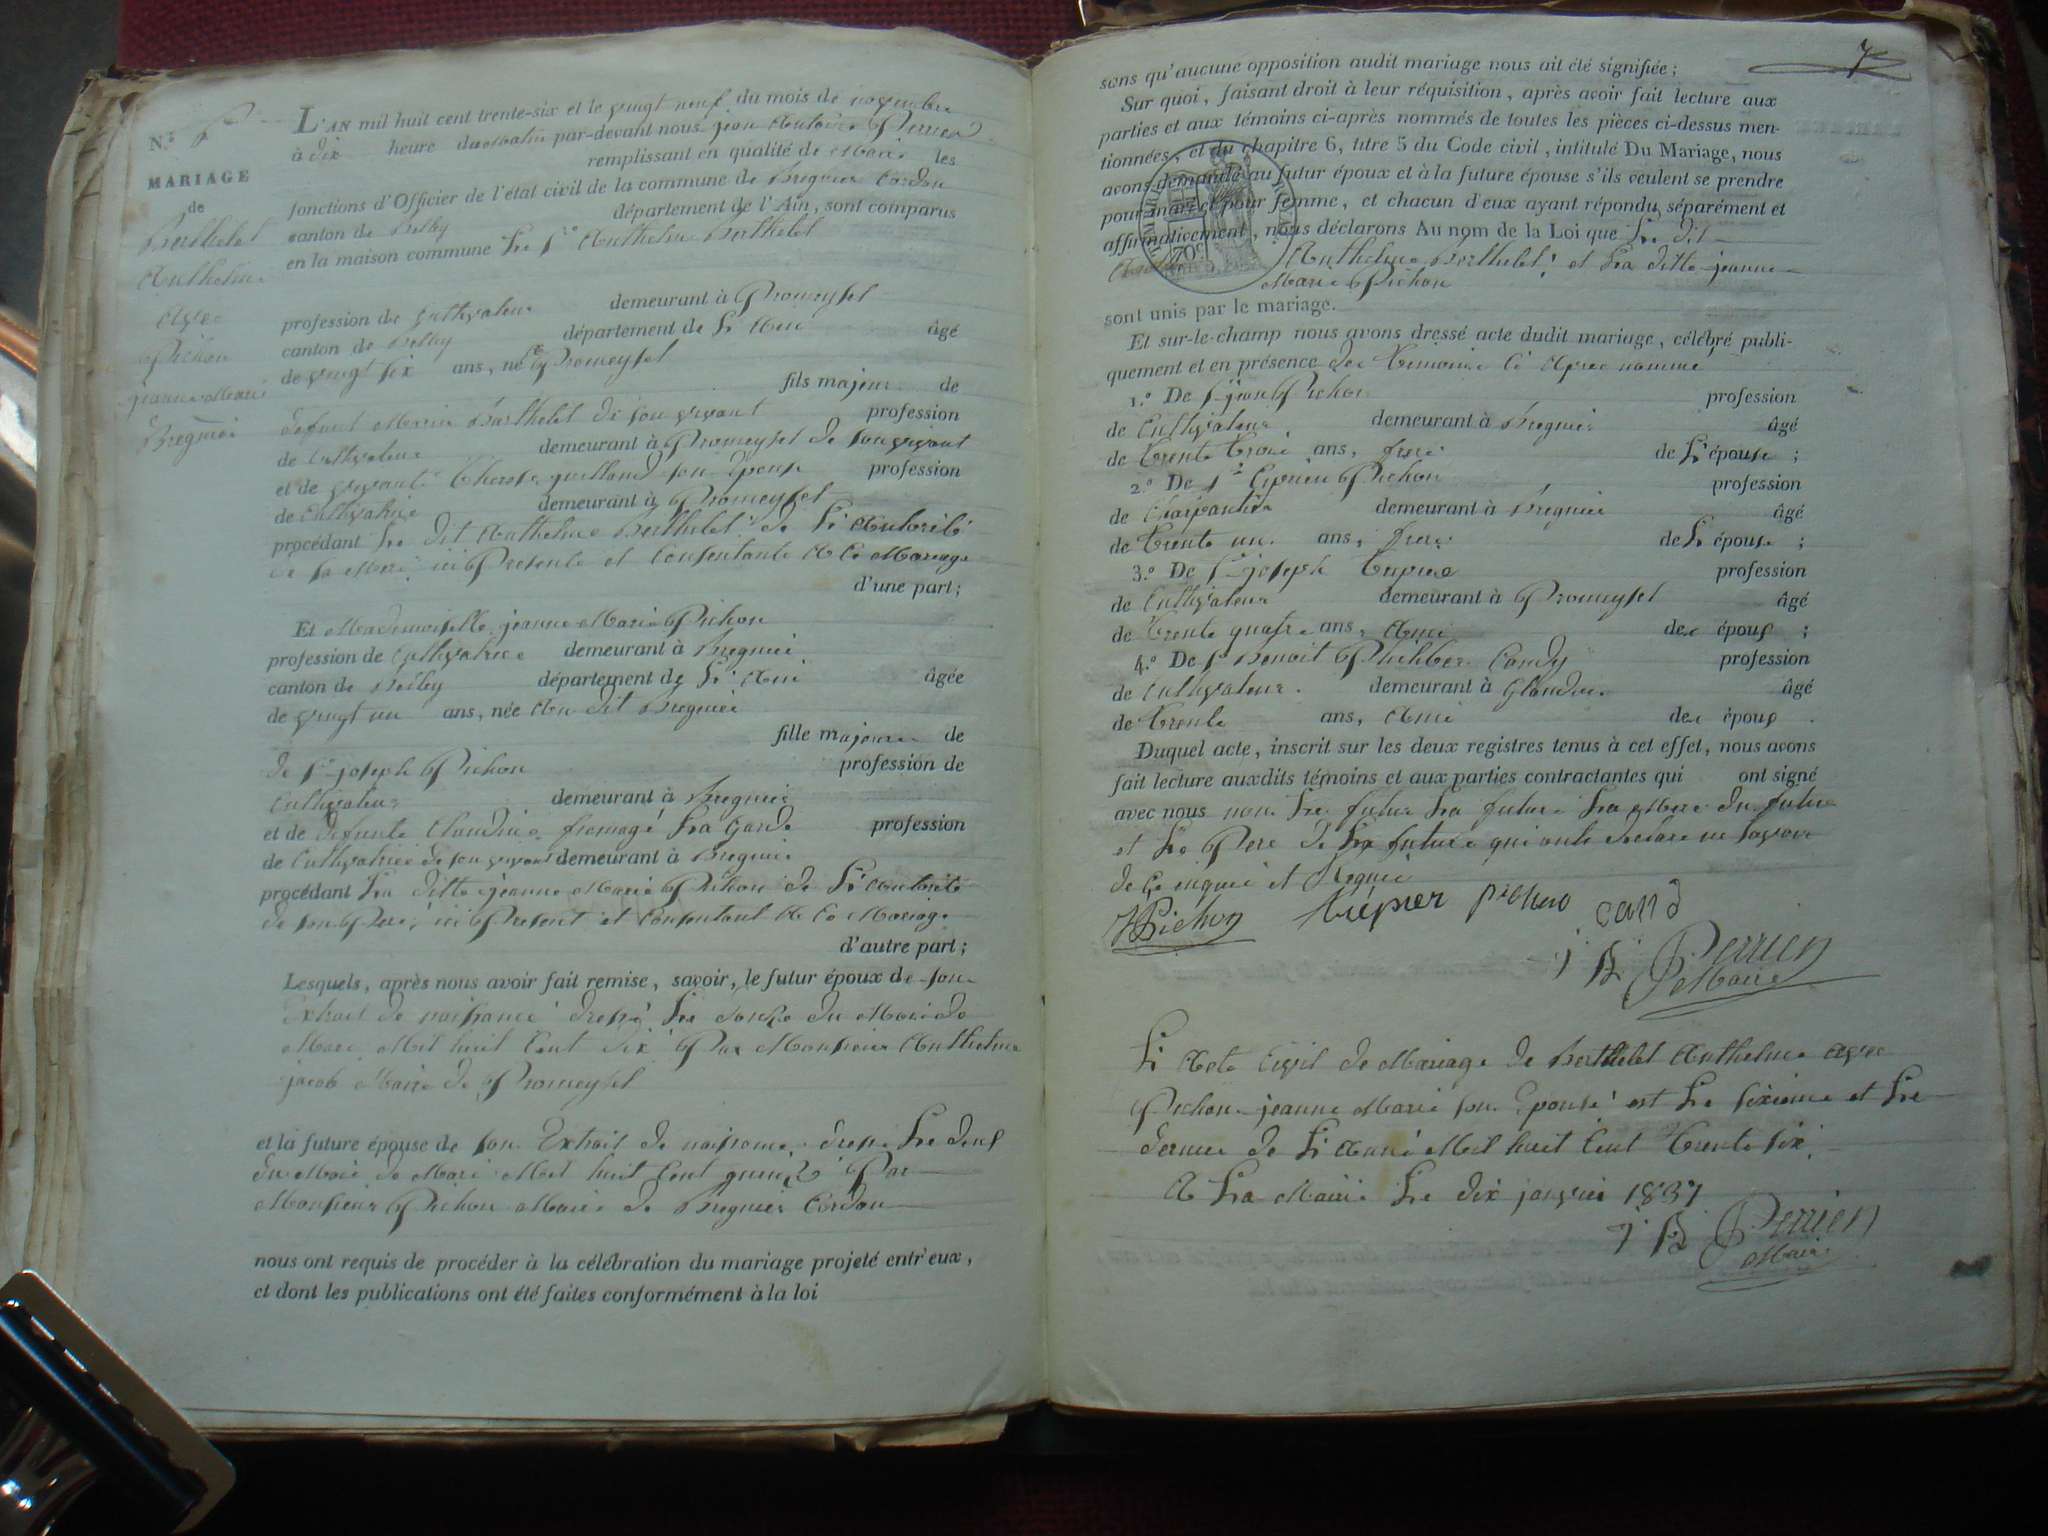 N.o 6
MARIAGE
de
Berthelet
Anthelme
Avec
Pichon
jeanne Marie
Bregnier
L'AN mil huit cent trente-six et le vingt neuf du mois de novembre
à dix heure du Matin par-devant nous jean Perrien
remplissant en qualité de Maire les
fonctions d'Officier de l'état civil de la commune de Bregnier Cordon
canton de Belley département de l'Ain, sont comparus
en la maison commune Le Sr Anthelme Berthelet
profession de Cultivateur demeurant à Promeysel
canton de Belley département de L'Ain âgé
de vingt six ans, né à Promeysel
fils majeur de
defunt Berthelet de son vivant profession
de Cultivateur demeurant à Promeysel de son vivant
et de vivante Therese son Epouse profession
de Cultivatrice demeurant à Promeysel
procédant Le dit Anthelme Berthelet de L'Autorité
de sa Mere ici Presente et Consentante A Ce Mariage
d'une part;
Et Mademoiselle jeanne Marie Pichon
profession de Cultivatrice demeurant à Bregnier
canton de Belley département de L'Ain âgée
de vingt un ans, née Au dit Bregnier
fille majeure de
de Sr joseph Pichon profession de
Cultivateur demeurant à Bregnier
et de defunte Claudine fromage La Garde profession
de Cultivatrice de son vivant demeurant à Bregnier
procédant La ditte jeanne Marie Pichon de L'Autorité
de son Pere, ici Present et Consentant A Ce Mariage
d'autre part;
Lesquels, après nous avoir fait remise, savoir, le futur époux de son
Extrait de naissance dressé Le du Mois de
Mars Mil huit Cent dix Par Monsieur Anthelme
jacob Maire de Promeysel
et la future épouse de son Extrait de naissance dressé Le deux
du Mois de Mars Mil huit Cent quinze Par
Monsieur Pichon Maire de Bregnier Cordon
nous ont requis de procéder à la célébration du mariage projeté entr'eux,
et dont les publications ont été faites conformément à la loi
7
sans qu'aucune opposition audit mariage nous ait été signifiée;
Sur quoi, faisant droit à leur réquisition, après avoir fait lecture aux
parties et aux témoins ci-après nommés de toutes les pièces ci-dessus men-
tionnées, et du chapitre 6, titre 5 du Code civil, intitulé Du Mariage, nous
avons demandé au futur époux et à la future épouse s'ils veulent se prendre
pour mari et pour femme, et chacun d'eux ayant répondu séparément et
affirmativement, nous déclarons Au nom de la Loi que Le dit
Anthelme Berthelet et La ditte jeanne
Marie Pichon
70c
sont unis par le mariage.
Et sur-le-champ nous avons dressé acte dudit mariage, célébré publi-
quement et en présence des temoins ci Apres nommé
1.o De Sr jean Pichon profession
de Cultivateur demeurant à Bregnier âgé
de trente trois ans, frere de L'épouse;
2.o De Sr Ciprien Pichon profession
de Charpantier demeurant à Bregnier âgé
de trente un ans, frere de L'épouse;
3.o De Sr joseph profession
de Cultivateur demeurant à Promeysel âgé
de trente quatre ans, Ami des époux;
4.o De Sr Benoit Philiber Candy profession
de Cultivateur demeurant à Glandieu âgé
de trente ans, Ami des époux.
Duquel acte, inscrit sur les deux registres tenus à cet effet, nous avons
fait lecture auxdits témoins et aux parties contractantes qui ont signé
avec nous non Le futur La future La Mere du futur
et Le Pere de La future qui ont declaré ne savoir
de Ce enquis et Requis
Pichon trépier pichon cand
J B Perrien
Maire
L'Acte Civil de Mariage de Berthelet Anthelme avec
Pichon jeanne Marie son Epouse est Le sixieme et Le
dernier de L'Année Mil huit Cent trente six.
A La Mairie Le dix janvier 1837
J B Perrien
Maire